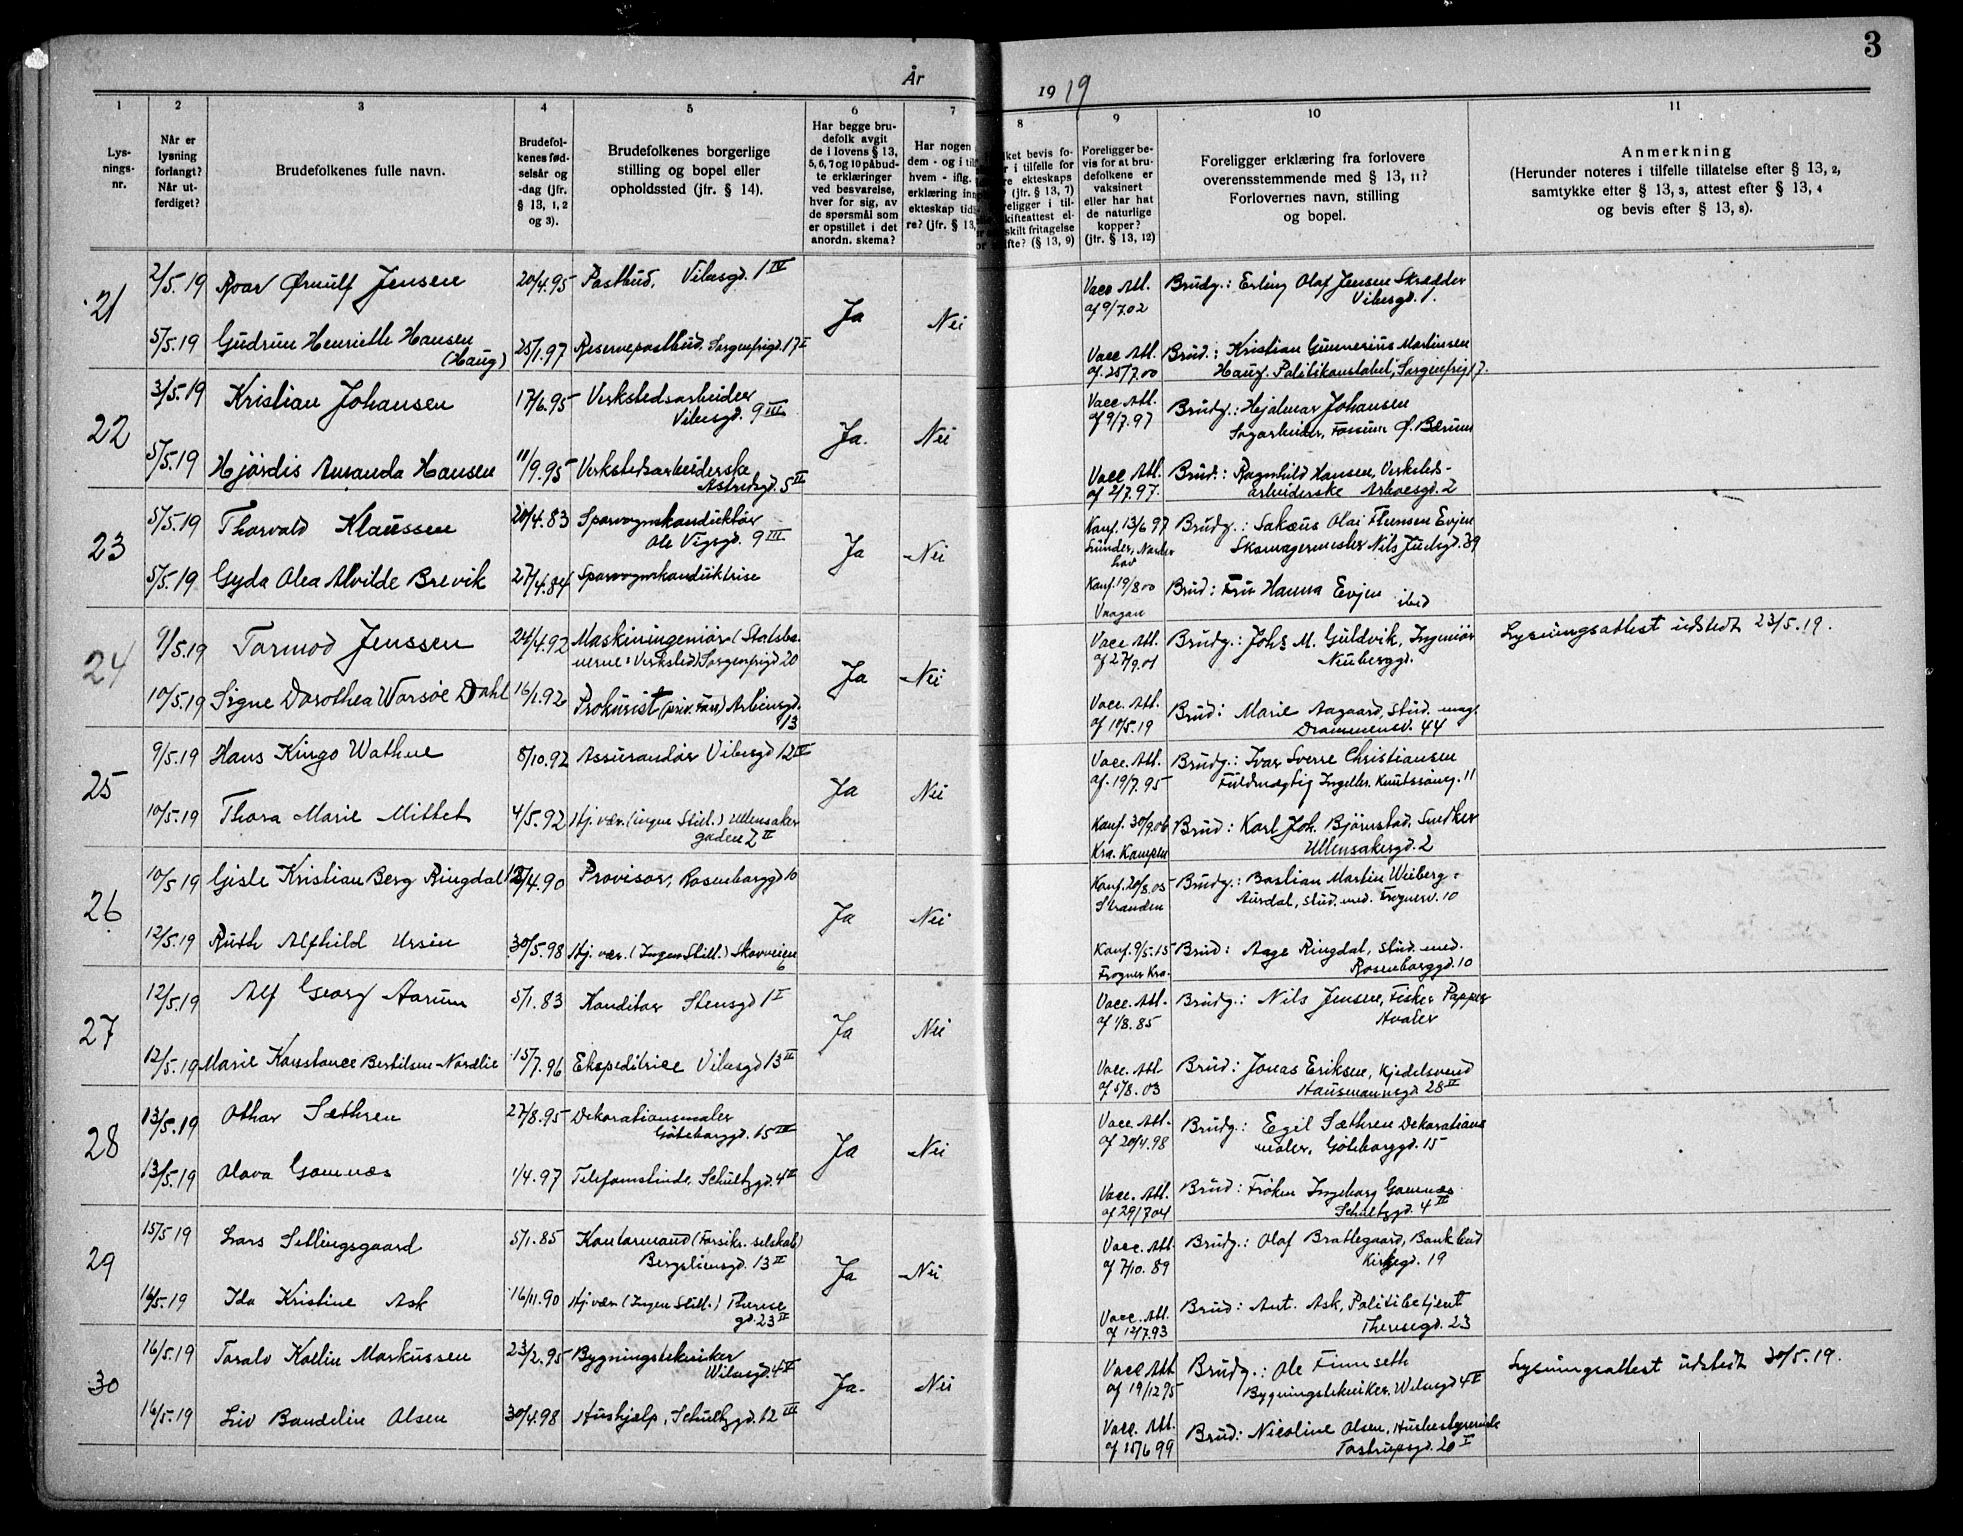 3
År 1919
1 2 3 4 5 6 7 8 9 10 11
Lys-
nings-
nr.
Når er
lysning
forlangt?
Når ut-
ferdiget?
Brudefolkenes fulle navn.
Brudefol-
kenes fød-
selsår og
-dag (jfr.
§ 13, 1, 2
og 3).
Brudefolkenes borgerlige
stilling og bopel eller
opholdssted (jfr. § 14).
Har begge bru-
defolk avgit
de i lovens § 13,
5, 6, 7 og 10 påbud-
te erklæringer
ved besvarelse,
hver for sig, av
de spørsmål som
er opstillet i det
anordn. skema?
Har nogen
dem - og i til
hvem - iflg.
erklæring inn
ekteskap tid
re? (jfr. § 13,
ket bevis fo-
r i tilfelle for
re ekteskaps
? (jfr. § 13, 7)
religger i til-
kifteattest el-
skilt fritagelse
ifte? (§ 13, 9)
Foreligger be-
vis for at bru-
defolkene er
vaksinert
eller har hat
de naturlige
kopper?
(jfr. § 13, 12)
Foreligger erklæring fra forlovere
overensstemmende med § 13, 11?
Forlovernes navn, stilling
og bopel.
Anmerkning
(Herunder noteres i tilfelle tillatelse efter § 13, 2,
samtykke efter § 13, 3, attest efter § 13, 4
og bevis efter § 13, 8).
21 2/5.19 Roar Ørnulf Jensen 20/4.95 Postbud, Vibesgd. 1 IV Ja Nei Vacc. Att. Brudg.: Erling Olaf Jensen Skrædder
af 9/7.02 Vibesgd. 1.
5/5.19 Gudrun Henriette Hansen 25/1.97 Reservepostbud. Sorgenfrigd. 17 I Vacc. Att. Brud.: Kristian Gunnerius Martinsen
(Haug) af 25/7.00 Haug. Politikonstabel, Sorgenfrig 17.
22 3/5.19 Kristian Johansen 17/6.95 Verkstedsarbeider Ja. Nei Vacc. Att. Brudg.: Hjalmar Johansen
Vibesgd. 9 III af 9/7.97 Sagarbeider, Fossum Ø. Bærum
5/5.19 Hjørdis Amanda Hansen 11/9.95 Verkstedsarbeiderske Vacc. Att. Brud.: Ragnhild Hansen, Verksteds-
Astridsgd. 5 II af 2/7.97. arbeiderske Arboesgd. 2
23 5/5.19 Thorvald Klaussen 20/4.83 Sporvognskonduktør Ja Nei Konf. 13/6 97 Brudg.: Sakæus Olai Thensen Evjen
Ole Vigsgd. 9 III Skomagermester Nils Juelsgd. 39
5/5.19 Gyda Olea Alvilde Brevik 27/4.84 Sporvognskonduktrise Konf. 19/8 00 Brud: Fru Hanna Evjen ibid
Vaagan
24 9/5.19 Tormod Jenssen 24/4.92 Maskiningeniør (Statsba- Ja Nei Vacc. Att. Brudg.: Johs M. Guldvik, Ingeniør Lysningsattest udstedt 23/5.19.
nernes Verksted) Sorgenfrigd 20 af 27/9.01 Neuberggd.
10/5.19 Signe Dorothea Worsøe Dahl 16/1.92 Prokurist (priv. Forr.) Arbiensgd. Vacc. Att. Brud: Marie Aagaard, stud. mag.
13 af 10/5.19 Drammensv. 44
25 9/5.19 Hans Kingo Wathne 8/10.92 Assurandør Vibesgd 12 IV Ja Nei Vacc. Att. Brudg.: Ivar Sverre Christiansen
af. 19/7.95 Fuldmægtig Ingelbr. Knutssønsg. 11
10/5.19 Thora Marie Mittet 4/5.92 Hj. vær. (ingen Still.) Ullensaker Konf. 30/9.06 Brud: Karl Joh. Bjørnstad, Snedker
gaden 2 II Kra. Kampen Ullensakergd. 2
26 10/5.19 Gisle Kristian Berg Ringdal 4.90 Provisor, Rosenborggd 10 Ja Nei Konf. 20/8.05 Brudg.: Bastian Martin Weiberg-
Stranden Aurdal, stud. med. Frognerv. 10
12/5.19 Ruth Alfhild Ursin 30/5.98 Hj. vær. (Ingen Still.) Skovveien Konf. 9/5.15 Brud: Aage Ringdal, stud. med.
6 Frogner Kra. Rosenborggd. 10
27 12/5.19 Alf Georg Aarum 5/1.83 Konditor Stensgd 1 I Ja Nei Vacc. Att. Brudg.: Nils Jensen, Fisker Papper
af 1/8.85 Hvaler
12/5.19 Marie Konstance Bertilsen-Nordlie 15/7.96 Ekspeditrice Vibesgd 13 II Vacc. Att Brud: Jonas Eriksen, Kjedelsvend
af 5/8.03 Hausmannsgd 28 II
28 13/5.19 Othar Sæthren 27/8.95 Dekorationsmaler Ja Nei Vacc. Att. Brudg.: Egil Sæthren Dekorations
Göteborggd. 15 IV af 20/4.98 maler, Göteborggd. 15
13/5.19 Olava Gamnæs 1/4.97 Telefonistinde. Schultzgd. 4 II Vacc. Att. Brud: Frøken Ingeborg Gamnæs
af 29/7 04 Schultzgd. 4 II
29 15/5 19 Lars Sellingsgaard 5/1.85 Kontormand (Forsikr. selskab) Ja Nei Vacc. Att. Brudg.: Olaf Brattegaard, Bankbud
Bergsliensgd. 13 II af 7/10.89 Kirkegd. 19
16/5.19 Ida Kristine Ask 16/11.90 Hj. vær. (Ingen Still.) Therese Vacc. Att. Brud: Ant. Ask, Politibetjent
gd. 23 II af 12/7.93 Theresegd. 23
30 16/5.19 Toralv Kollin Markussen 23/2.95 Bygningstekniker Ja. Nei Vacc Att Brudg.: Ole Finnseth Lysningsattest udstedt 30/5.19.
Wibesgd. 4 V af 19/12 95 Bygningstekniker, Wibesgd 4 V
16/5.19 Liv Bondelin Olsen 30/4.98 Hushjælp, Schultzgd. 12 III Vacc. Att. Brud: Nicoline Olsen, Husbestyrerinde
af 15/6 99 Tostrupsgd. 20 I